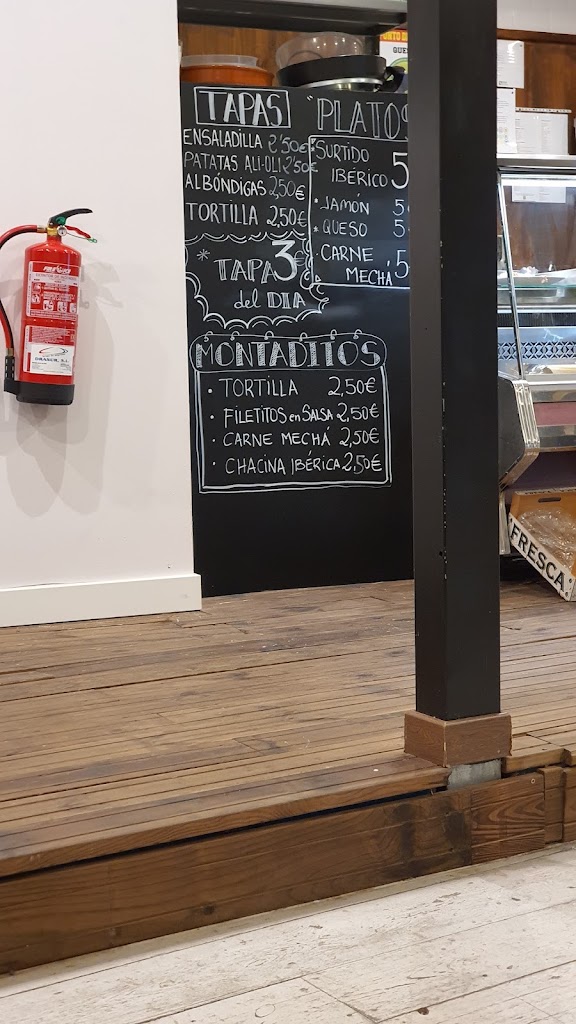 TAPAS
ENSALADILLA 2'50€
PATATAS ALI-OLI 2'50€
ALBÓNDIGAS 2,50€
TORTILLA 2,50€
* TAPA 3€
del DIA
"PLATOS
*SURTIDO
IBÉRICO 5
*JAMÓN 5
*QUESO 5
CARNE
MECHÁ 5
MONTADITOS
· TORTILLA 2,50€
· FILETITOS en SALSA 2,50€
· CARNE MECHÁ 2,50€
· CHACINA IBÉRICA 2,50€
FRESCA